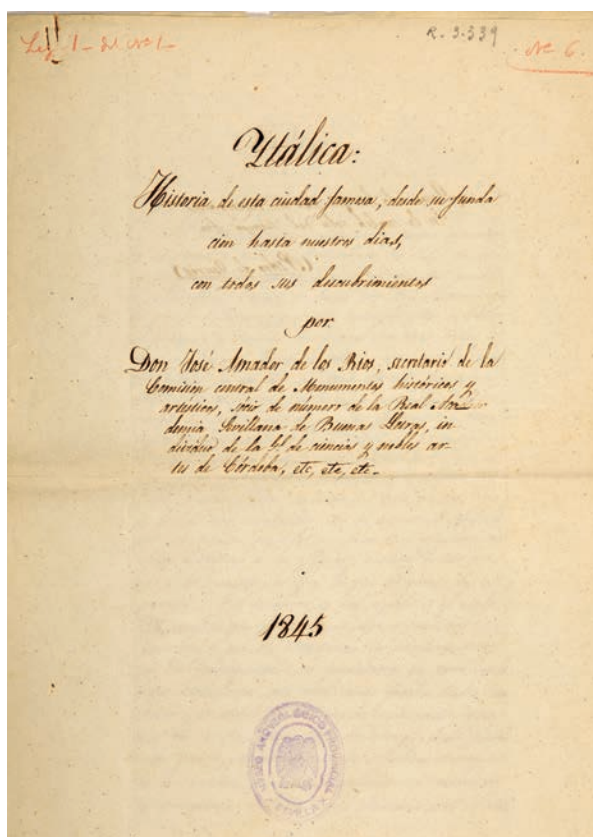 Leg. 1- del Nº 1-
R. 3.339
Nº 6.
Ytálica:
Historia de esta ciudad famosa, desde su funda
cion hasta nuestros dias,
con todos sus descubrimientos
por
Don José Amador de los Rios, secretario de la
Comision central de Monumentos históricos y
artísticos, socio de número de la Real Aca
demia Sevillana de Buenas Letras, in
dividuo de la de ciencias y nobles ar-
tes de Córdoba, etc, etc, etc-
1845
MUSEO ARQUEOLOGICO PROVINCIAL
SEVILLA